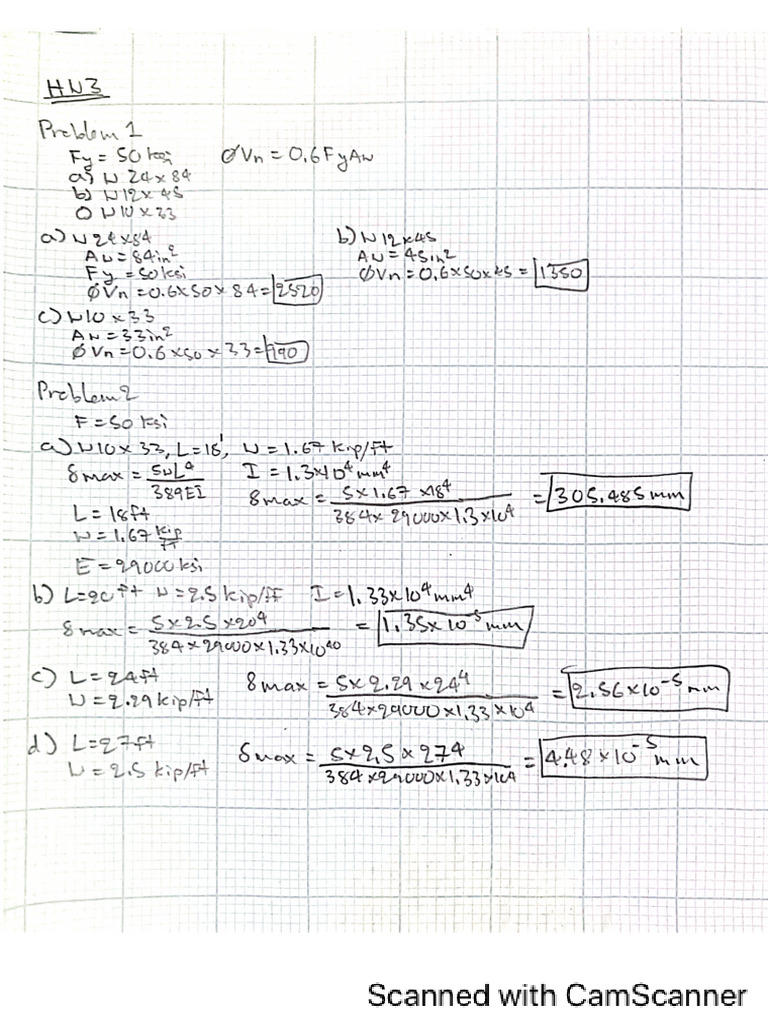 HW3
Problem 1
Fy = 50 ksi   ØVn = 0.6FyAw
a) W 24 x 84
b) W12 x 45
c) W10 x 33
a) W24 x 84
Aw = 84in²
Fy = 50ksi
ØVn = 0.6 x 50 x 84 = 2520
b) W12x45
Aw = 45in²
ØVn = 0.6 x 50 x 45 = 1350
c) W10 x 33
Aw = 33in²
ØVn = 0.6 x 50 x 33 = 990
Problem 2
F = 50 ksi
a) W10 x 33, L = 18', W = 1.67 kip/ft
δmax = 5wL⁴/389EI   I = 1.3x10⁴ mm⁴
δmax = 5 x 1.67 x 18⁴/384 x 29000 x 1.3 x 10⁴ = 305.485 mm
L = 18ft
W = 1.67 kip/ft
E = 29000 ksi
b) L = 20 ft W = 2.5 kip/ft   I = 1.33x10⁴ mm⁴
δmax = 5 x 2.5 x 20⁴/384 x 29000 x 1.33x10⁴⁰ = 1.35 x 10⁻⁵ mm
c) L = 24ft
W = 2.29 kip/ft
δmax = 5 x 2.29 x 24⁴/384 x 29000 x 1.33 x 10⁴ = 2.56 x 10⁻⁵ mm
d) L = 27ft
W = 2.5 kip/ft
δmax = 5 x 2.5 x 27⁴/384 x 29000 x 1.33 x 10⁴ = 4.48 x 10⁻⁵ mm
Scanned with CamScanner